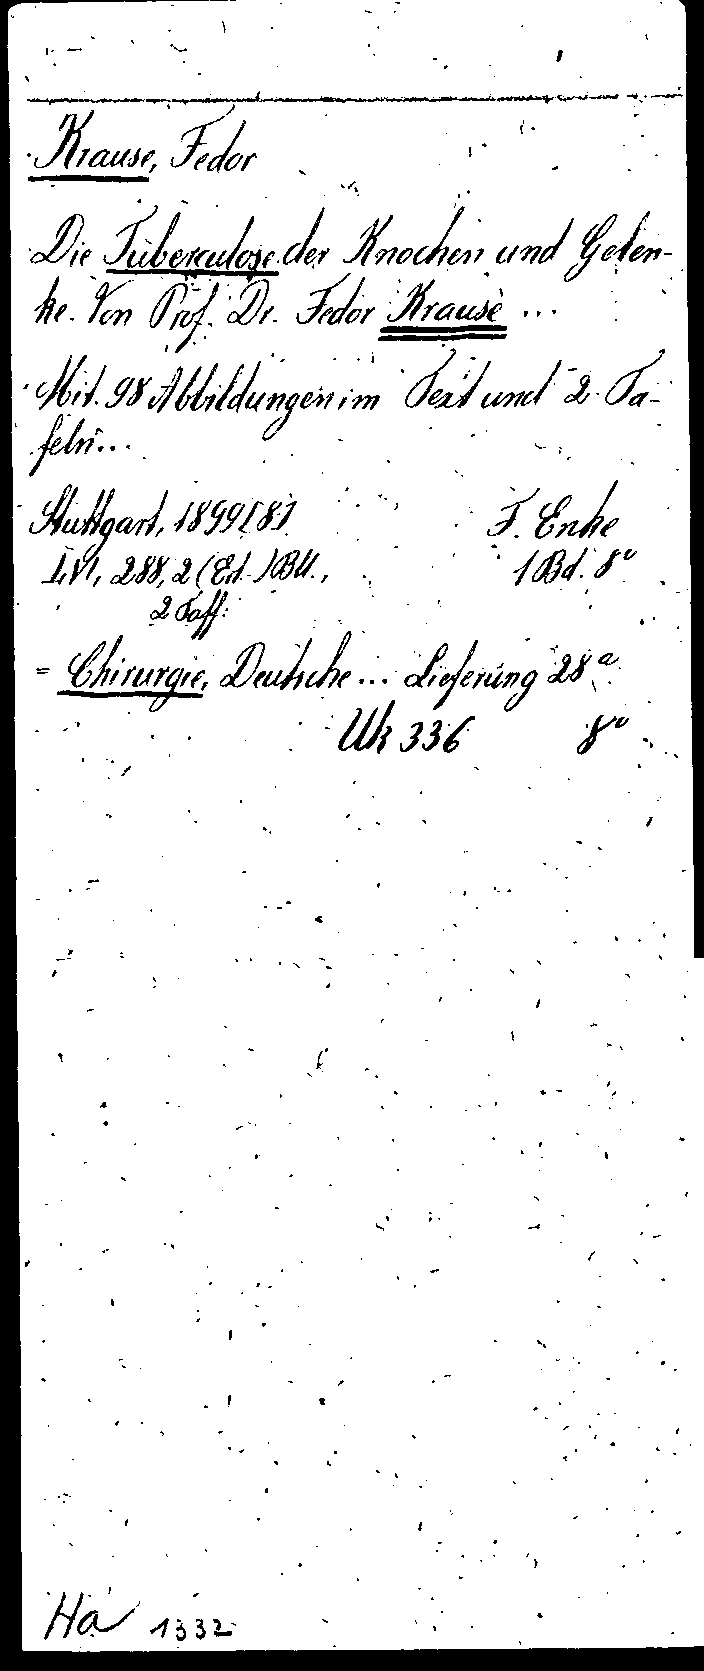 Krause, Fedor
Die Tuberculose der Knochen und Gelen-
ke. Von Prof. Dr. Fedor Krause ...
Mit 98 Abbildungen im Text und 2 Ta-
feln...
Stuttgart, 1899[8]. F. Enke
288, 2 (Ed.) Bll., 1 Bd. 8°
2 Taff.
= Chirurgie, Deutsche ... Lieferung 28a
Uk 336 8°
Ha 1332